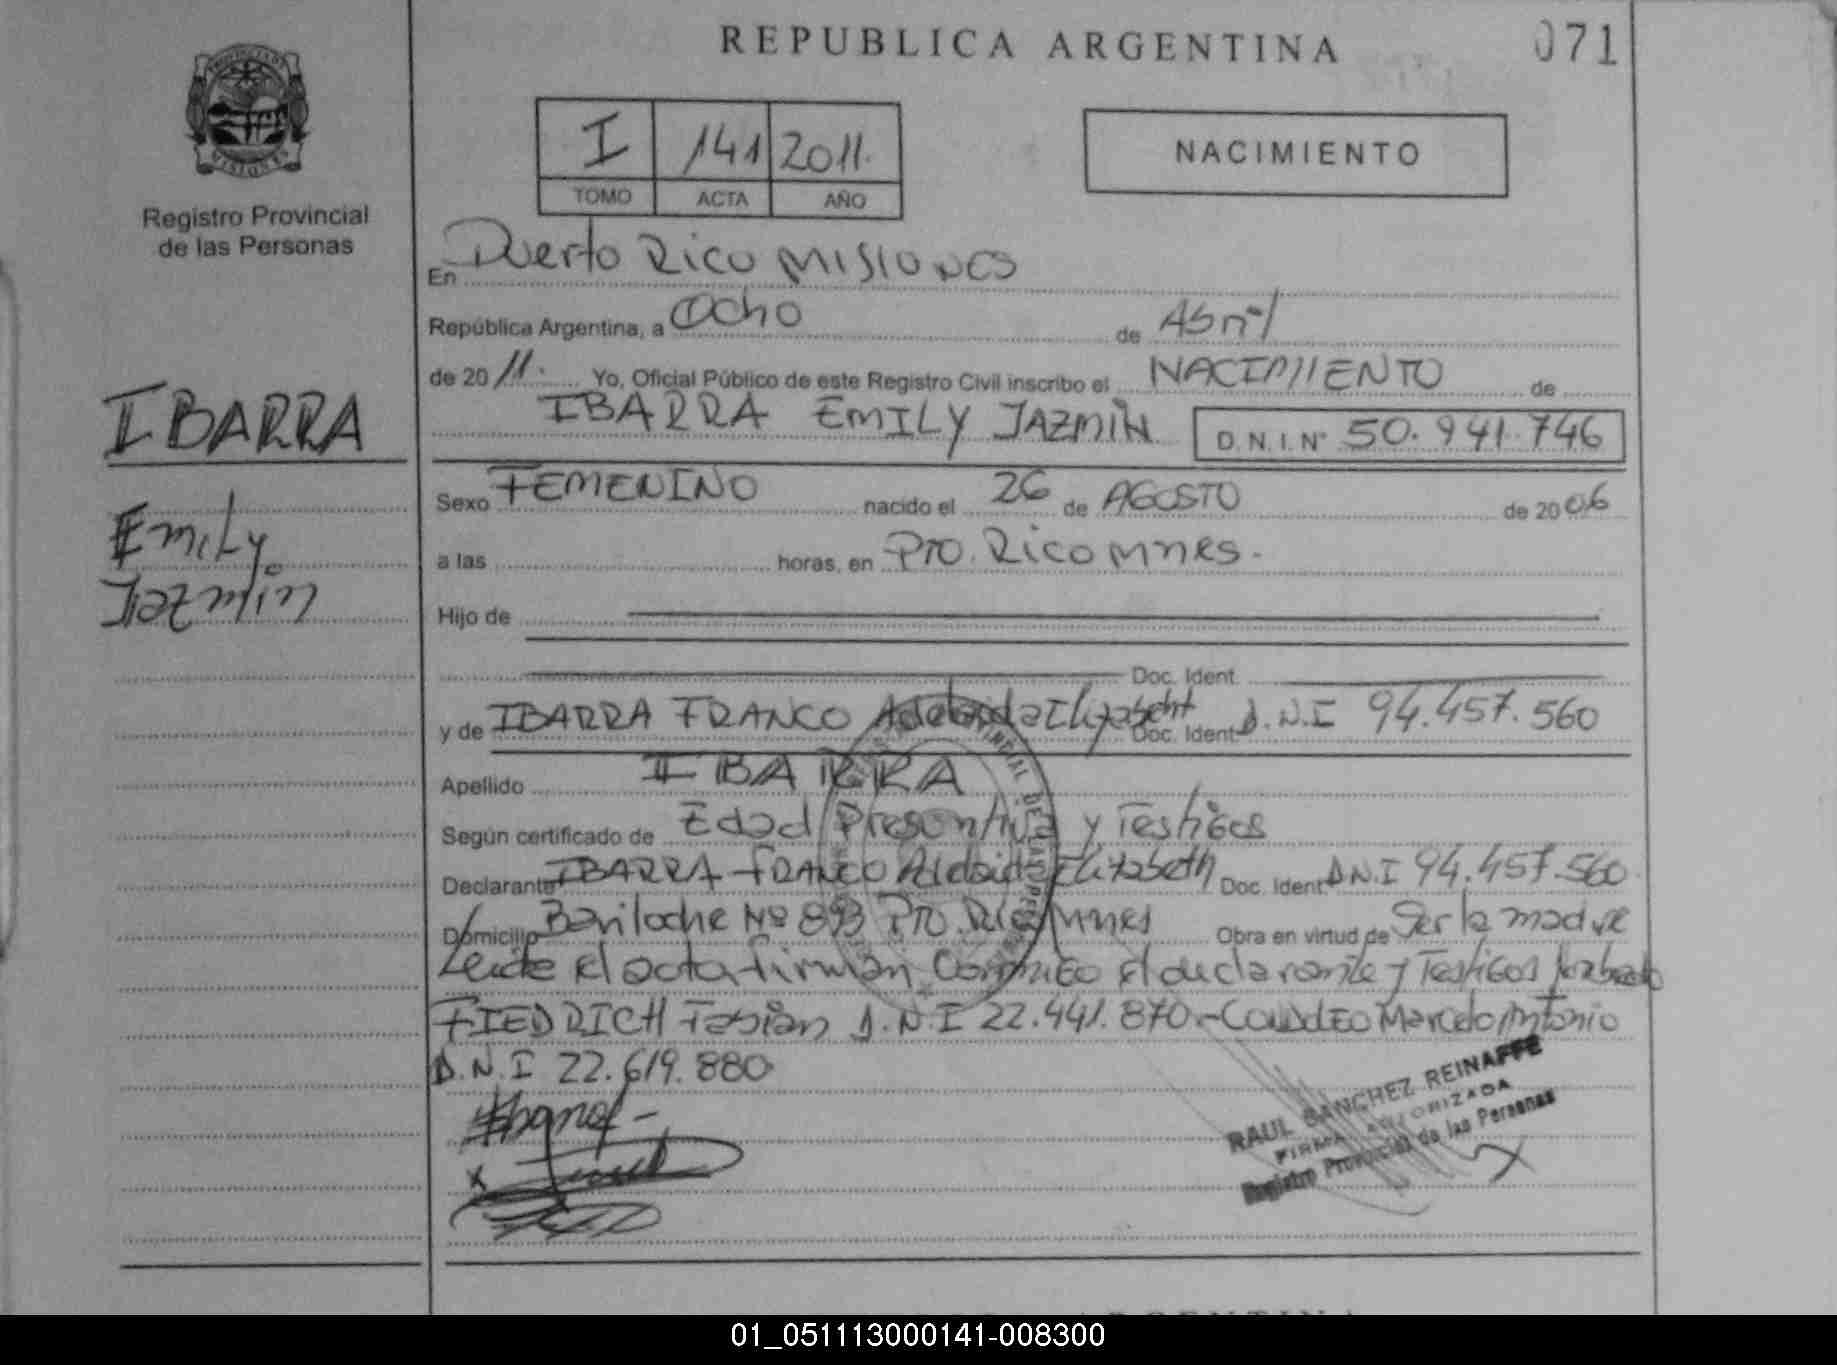 REPUBLICA ARGENTINA
071
PROVINCIA DE MISIONES
Registro Provincial
de las Personas
I 141 2011.
TOMO ACTA AÑO
NACIMIENTO
En Puerto Rico MISIONES
República Argentina, a Ocho de Abril
de 20 11. Yo, Oficial Público de este Registro Civil inscribo el NACIMIENTO de
IBARRA EMILY JAZMIN D.N.I. N° 50.941.746
IBARRA
Emily
Jazmin
Sexo FEMENINO nacido el 26 de AGOSTO de 20 06
a las horas, en Pto. Rico Mnes.
Hijo de
Doc. Ident.
y de IBARRA FRANCO Adelaida Elizabeht Doc. Ident. D.N.I 94.457.560
Apellido IBARRA
Según certificado de Edad Presontiva y Testigos
Declarante IBARRA FRANCO Aldaida Elizabeth Doc. Ident. D.N.I 94.457.560
Domicilio Bariloche Nº 893 Pto. Rico Mnes Obra en virtud de Ser la madre
Leida el acta firman Conmigo el declarante y Testigos
FIEDRICH Fabian D.N.I 22.441.870.- Marcelo Antonio
D.N.I 22.619.880
RAUL SANCHEZ REINAFFE
FIRMA AUTORIZADA
Registro Provincial de las Personas
ARGENTINA
01_051113000141-008300